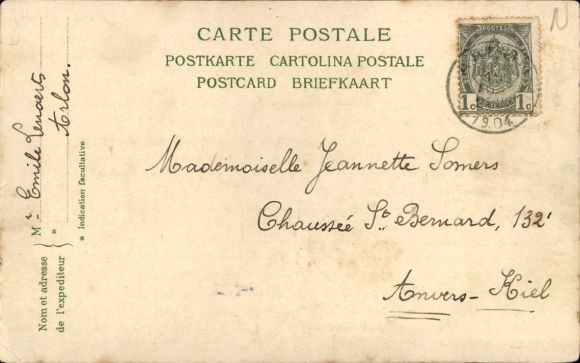 CARTE POSTALE
POSTKARTE CARTOLINA POSTALE
POSTCARD BRIEFKAART
1c 1c
1904
N
Mademoiselle Jeannette Somers
Chaussée St. Bernard, 132'
Anvers-Kiel
Nom et adresse
de l'expéditeur
Mr Emile Lenaerts
* Arlon.
* Indication facultative